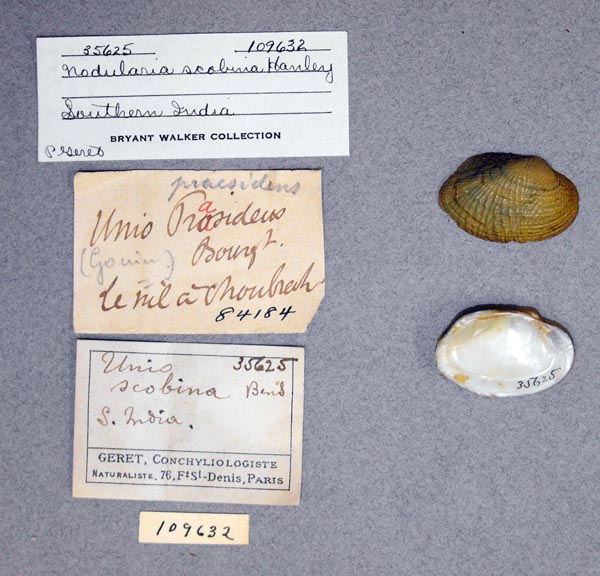 35625 109632
Nodularia scobina Hanley
Southern India
BRYANT WALKER COLLECTION
P Geret
praesidens
Unio Prasidens
a
(Gouin.) Bourgt.
Le nil à Choubrah
84184
Unio 35625
scobina Bens
S. India.
GERET, CONCHYLIOLOGISTE
NATURALISTE, 76, Fg St-DENIS, PARIS
109632
35625